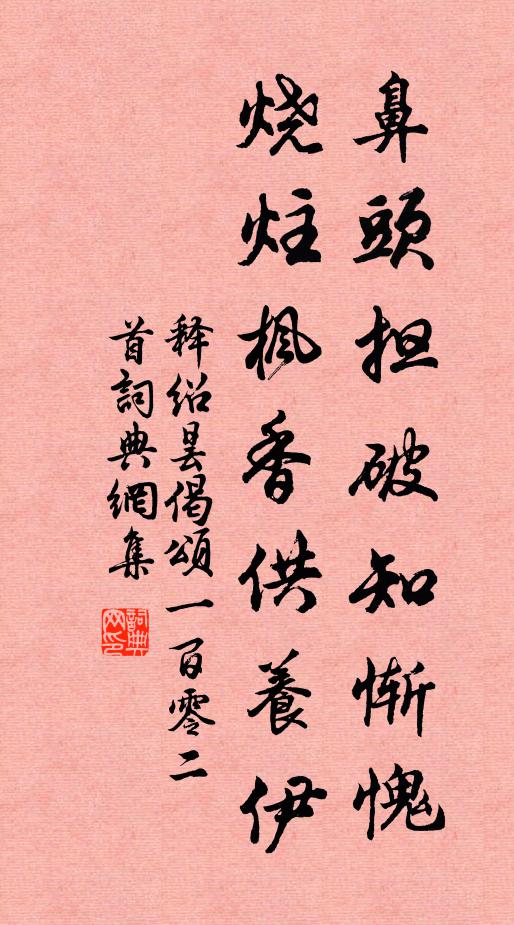 鼻頭担破知慚愧
烧炷楓香供養伊
释绍昙偈頌一百零二
首詞典網集
詞典网印